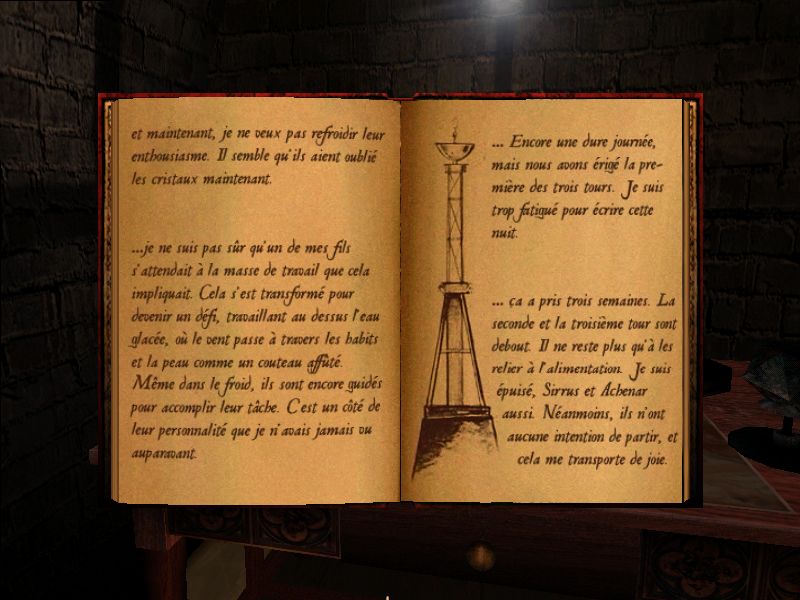 et maintenant, je ne veux pas refroidir leur
enthousiasme. Il semble qu'ils aient oublié
les cristaux maintenant.
...je ne suis pas sûr qu'un de mes fils
s'attendait à la masse de travail que cela
impliquait. Cela s'est transformé pour
devenir un défi, travaillant au dessus l'eau
glacée, où le vent passe à travers les habits
et la peau comme un couteau affûté.
Même dans le froid, ils sont encore guidés
pour accomplir leur tâche. C'est un côté de
leur personnalité que je n'avais jamais vu
auparavant.
... Encore une dure journée,
mais nous avons érigé la pre-
mière des trois tours. Je suis
trop fatigué pour écrire cette
nuit.
... ça a pris trois semaines. La
seconde et la troisième tour sont
debout. Il ne reste plus qu'à les
relier à l'alimentation. Je suis
épuisé, Sirrus et Achenar
aussi. Néanmoins, ils n'ont
aucune intention de partir, et
cela me transporte de joie.